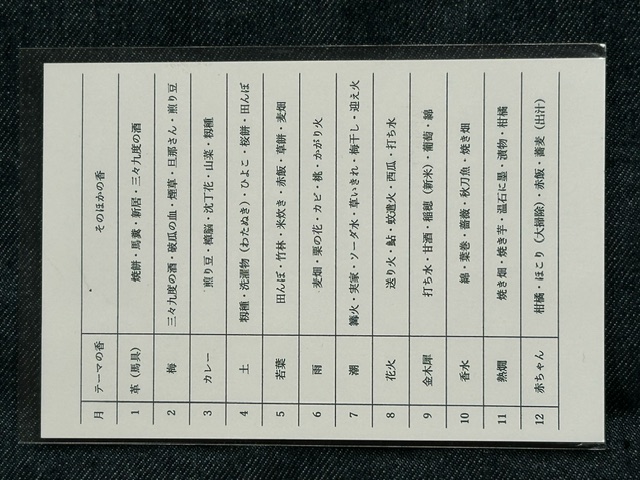 月 テーマの香 そのほかの香
1 革（馬具） 焼餅・馬糞・新居・三々九度の酒
2 梅 三々九度の酒・破瓜の血・煙草・旦那さん・煎り豆
3 カレー 煎り豆・樟脳・沈丁花・山菜・籾種
4 土 籾種・洗濯物（わたぬき）・ひよこ・桜餅・田んぼ
5 若葉 田んぼ・竹林・米炊き・赤飯・草餅・麦畑
6 雨 麦畑・栗の花・カビ・桃・かがり火
7 潮 篝火・実家・ソーダ水・草いきれ・梅干し・迎え火
8 花火 送り火・鮎・蚊遣火・西瓜・打ち水
9 金木犀 打ち水・甘酒・稲穂（新米）・葡萄・綿
10 香水 綿・葉巻・薔薇・秋刀魚・焼き畑
11 熱燗 焼き畑・焼き芋・温石に墨・漬物・柑橘
12 赤ちゃん 柑橘・ほこり（大掃除）・赤飯・蕎麦（出汁）